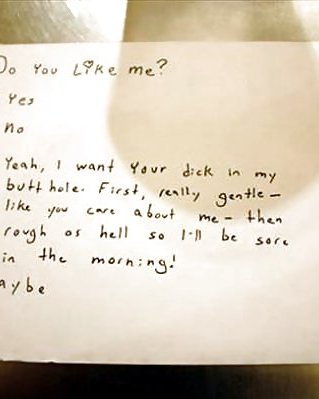 Do You Like me?
Yes
No
Yeah, I want Your dick in my
butt hole. First, really gentle -
like you care about me - then
rough as hell so I'll be sore
in the morning!
aybe